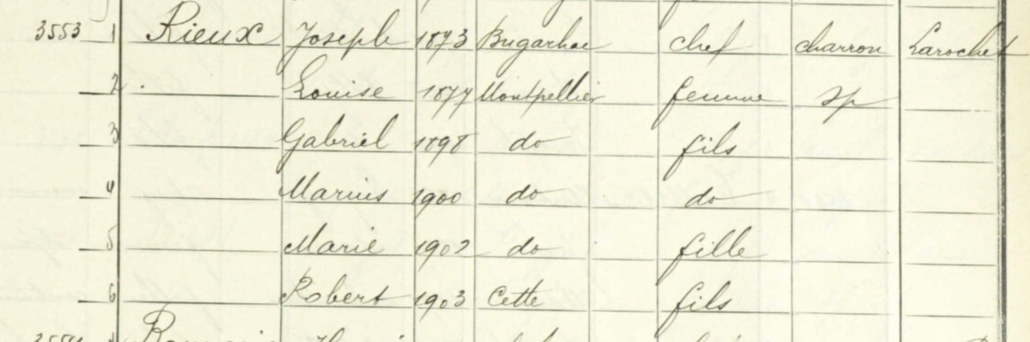 3553 1 Rieux Joseph 1873 Bugarhac chef charron Larochet
2 Louise 1877 Montpellier femme sp
3 Gabriel 1898 do fils
4 Marius 1900 do do
5 Marie 1902 do fille
6 Robert 1903 Cette fils